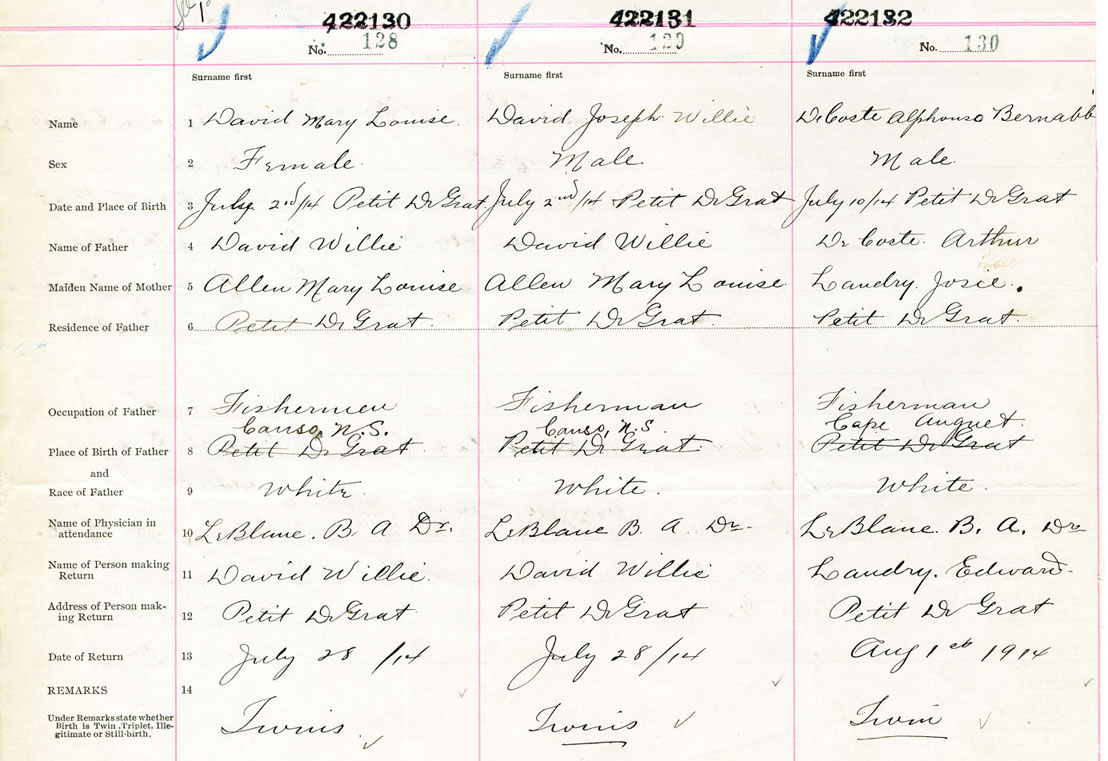 422130 422131 422132
No. 128 No. 129 No. 130
Surname first Surname first Surname first
Name 1 David Mary Louise. David Joseph Willie DeCoste Alphonso Bernabb
Sex 2 Female. Male. Male.
Date and Place of Birth 3 July 2nd/14 Petit DeGrat July 2nd/14 Petit DeGrat July 10/14 Petit DeGrat
Name of Father 4 David Willie David Willie DeCoste. Arthur
Maiden Name of Mother 5 Allen Mary Louise Allen Mary Louise Landry. Josie.
Residence of Father 6 Petit DeGrat. Petit DeGrat. Petit DeGrat.
Occupation of Father 7 Fishermen Fisherman Fisherman
Canso, N.S. Canso, N.S Cape Auguet.
Place of Birth of Father 8 Petit DeGrat. Petit DeGrat. Petit DeGrat
and
Race of Father 9 White. White. White.
Name of Physician in
attendance 10 LeBlanc. B. A Dr. LeBlanc B. A. Dr. LeBlanc. B. A. Dr
Name of Person making
Return 11 David Willie. David Willie Landry. Edward.
Address of Person mak-
ing Return 12 Petit DeGrat Petit DeGrat Petit DeGrat
Date of Return 13 July 28 /14 July 28/14 Aug 1st 1914
REMARKS 14
Under Remarks state whether
Birth is Twin, Triplet, Ille-
gitimate or Still-birth. Twins Twins Twin